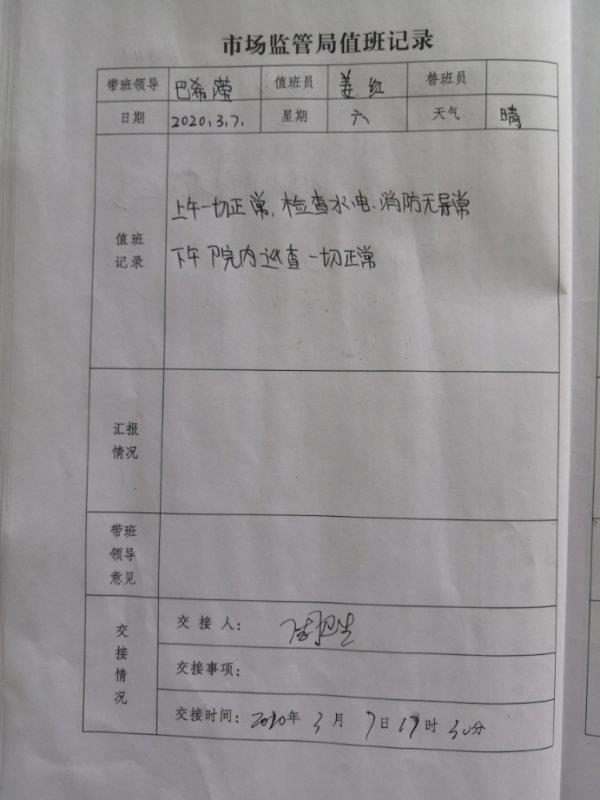 市场监管局值班记录
带班领导 巴希莹 值班员 姜红 替班员
日期 2020.3.7. 星期 六 天气 晴
值班记录
上午一切正常,检查水电、消防无异常
下午 院内巡查一切正常
汇报情况
带班领导意见
交接情况
交接人:
交接事项:
交接时间: 2020年 3月 7日 17时 30分